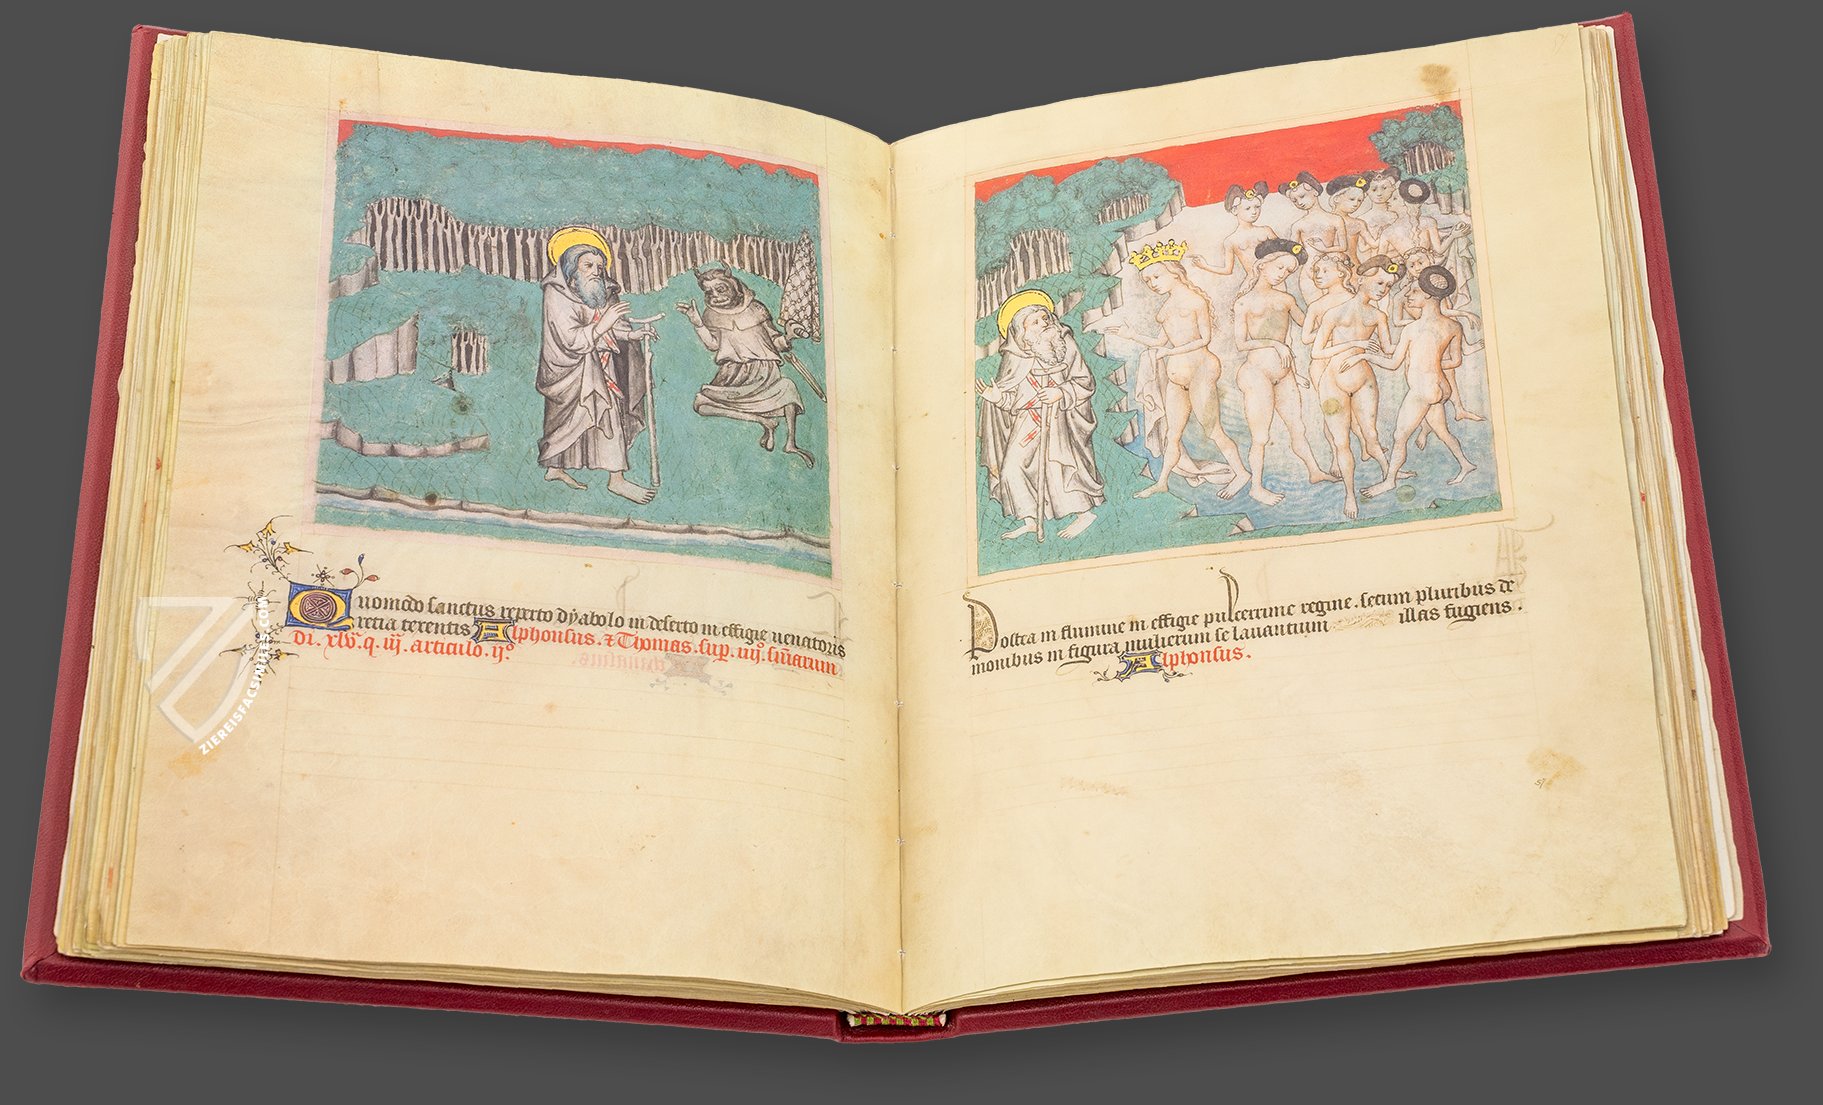 Quomodo sanctus reperto dyabolo in deserto in effigie uenatoris
retia texentis Alphonsus. & Thomas. sup. iiij. sniarum
di. xlv. q. iij. articulo. ijº
Postea in flumine in effigie pulcerrime regine. secum pluribus de
monibus in figura mulierum se lauantium illas fugiens.
Alphonsus.
57
ZIEREISFACSIMILES.COM